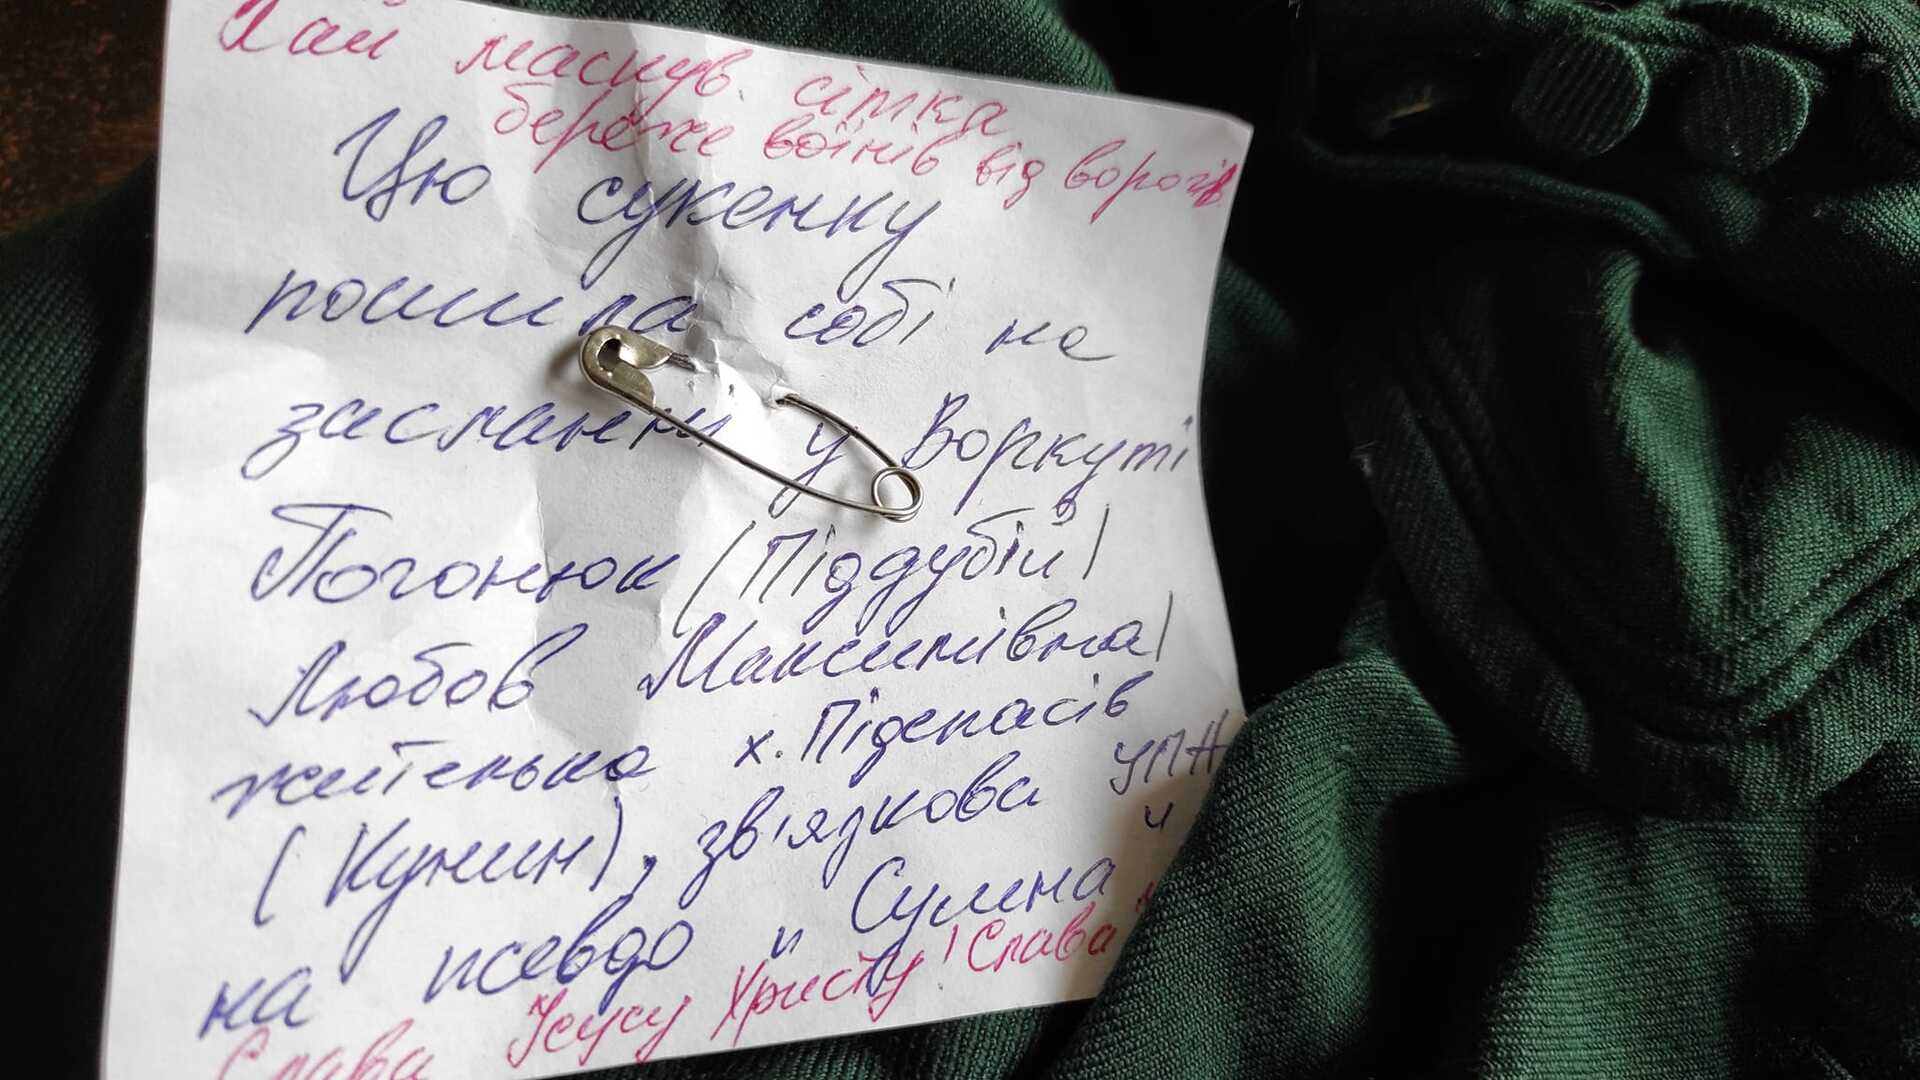 Хай маскув. сітка
береже воїнів від ворогів
Цю сукенку
пошила собі на
засланні у Воркуті
Погонюк (Піддубій)
Любов Максимівна)
жителька х. Підспасів
(Кунин), зв'язкова УПА
на псевдо "Сулина"
Слава Ісусу Христу! Слава